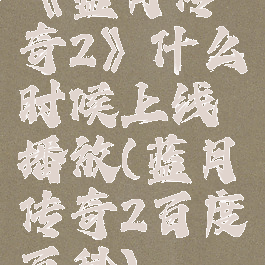 《蓝月传
奇2》什么
时候上线
播放(蓝月
传奇2百度
百科)